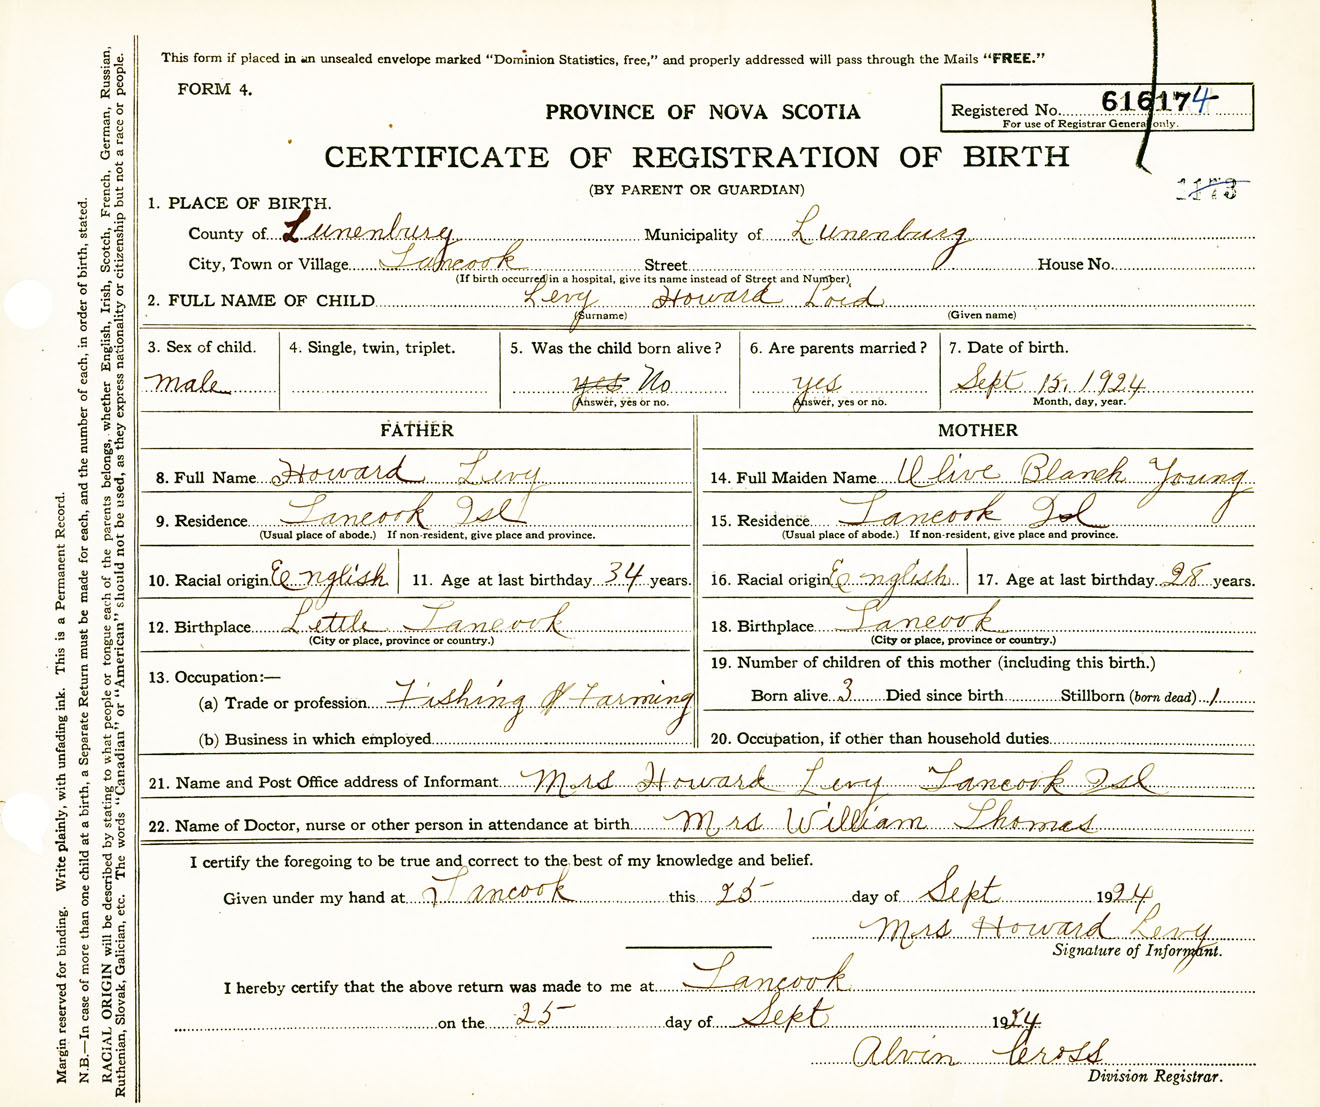 This form if placed in an unsealed envelope marked "Dominion Statistics, free," and properly addressed will pass through the Mails "FREE."
FORM 4.
PROVINCE OF NOVA SCOTIA
Registered No. 616174
For use of Registrar General only.
CERTIFICATE OF REGISTRATION OF BIRTH
1173
(BY PARENT OR GUARDIAN)
1. PLACE OF BIRTH.
County of Lunenburg Municipality of Lunenburg
City, Town or Village Tancook Street House No.
(If birth occurred in a hospital, give its name instead of Street and Number)
2. FULL NAME OF CHILD Levy Howard Loid
(Surname) (Given name)
3. Sex of child. 4. Single, twin, triplet. 5. Was the child born alive? 6. Are parents married? 7. Date of birth.
male yes No yes Sept 15, 1924
Answer, yes or no. Answer, yes or no. Month, day, year.
FATHER MOTHER
8. Full Name Howard Levy 14. Full Maiden Name Olive Blanch Young
9. Residence Tancook Isl 15. Residence Tancook Isl
(Usual place of abode.) If non-resident, give place and province. (Usual place of abode.) If non-resident, give place and province.
10. Racial origin English 11. Age at last birthday 34 years. 16. Racial origin English 17. Age at last birthday 28 years.
12. Birthplace Lettle Tancook 18. Birthplace Tancook
(City or place, province or country.) (City or place, province or country.)
13. Occupation:— 19. Number of children of this mother (including this birth.)
(a) Trade or profession Fishing & Farming Born alive 3 Died since birth Stillborn (born dead) 1
(b) Business in which employed 20. Occupation, if other than household duties
21. Name and Post Office address of Informant Mrs Howard Levy Tancook Isl
22. Name of Doctor, nurse or other person in attendance at birth Mrs William Thomas
I certify the foregoing to be true and correct to the best of my knowledge and belief.
Given under my hand at Tancook this 25 day of Sept 1924
Mrs Howard Levy
Signature of Informant.
I hereby certify that the above return was made to me at Tancook
on the 25 day of Sept 1924
Alvin Cross
Division Registrar.
Margin reserved for binding. Write plainly, with unfading ink. This is a Permanent Record.
N.B.—In case of more than one child at a birth, a Separate Return must be made for each, and the number of each, in order of birth, stated.
RACIAL ORIGIN will be described by stating to what people or tongue each of the parents belongs, whether English, Irish, Scotch, French, German, Russian,
Ruthenian, Slovak, Galician, etc. The words "Canadian" or "American" should not be used, as they express nationality or citizenship but not a race or people.